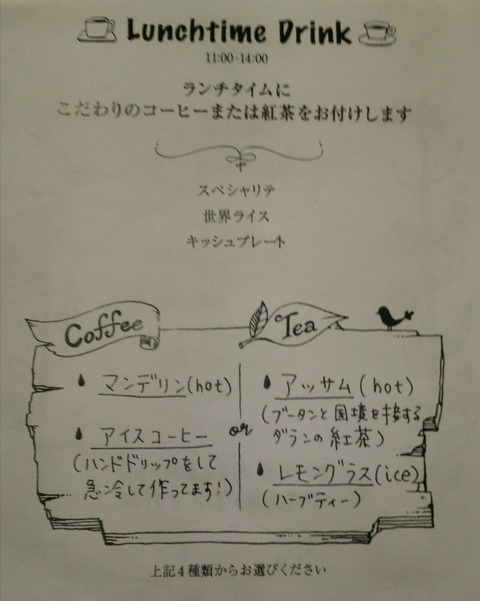 Lunchtime Drink
11:00-14:00
ランチタイムに
こだわりのコーヒーまたは紅茶をお付けします
スペシャリテ
世界ライス
キッシュプレート
Coffee
マンデリン(hot)
アイスコーヒー
(ハンドドリップをして
急冷して作ってます!)
or
Tea
アッサム(hot)
(ブータンと国境を接する
ダランの紅茶)
レモングラス(ice)
(ハーブティー)
上記4種類からお選びください